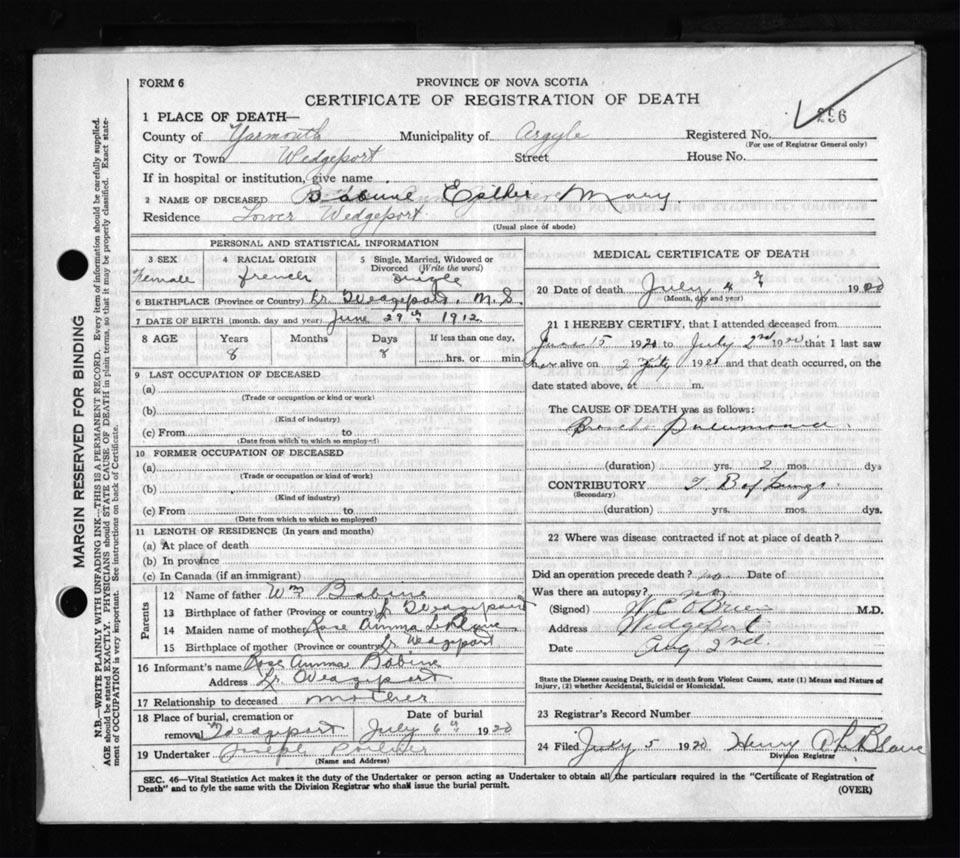 FORM 6
PROVINCE OF NOVA SCOTIA
CERTIFICATE OF REGISTRATION OF DEATH
296
1 PLACE OF DEATH—
County of Yarmouth Municipality of Argyle Registered No.
(For use of Registrar General only)
City or Town Wedgeport Street House No.
If in hospital or institution, give name
2 NAME OF DECEASED Babine Esther Mary
Residence Lower Wedgeport
(Usual place of abode)
PERSONAL AND STATISTICAL INFORMATION
3 SEX Female
4 RACIAL ORIGIN french
5 Single, Married, Widowed or Divorced (Write the word) single
6 BIRTHPLACE (Province or Country) Lr. Wedgeport, N.S.
7 DATE OF BIRTH (month, day and year) June 29th 1912
8 AGE Years Months Days If less than one day,
8 8 hrs. or min.
9 LAST OCCUPATION OF DECEASED
(a)
(Trade or occupation or kind or work)
(b)
(Kind of industry)
(c) From to
(Date from which to which so employed)
10 FORMER OCCUPATION OF DECEASED
(a)
(Trade or occupation or kind of work)
(b)
(Kind of industry)
(c) From to
(Date from which to which so employed)
11 LENGTH OF RESIDENCE (In years and months)
(a) At place of death
(b) In province
(c) In Canada (if an immigrant)
Parents
12 Name of father Wm Babine
13 Birthplace of father (Province or country) L Wedgeport
14 Maiden name of mother Rose Anna LeBlanc
15 Birthplace of mother (Province or country) Lr Wedgeport
16 Informant's name Rose Anna Babine
Address Lr. Wedgeport
17 Relationship to deceased mother
18 Place of burial, cremation or removal Wedgeport
Date of burial July 6th 1920
19 Undertaker Joseph
(Name and Address)
MEDICAL CERTIFICATE OF DEATH
20 Date of death July 4th 1920
(Month, day and year)
21 I HEREBY CERTIFY, that I attended deceased from
June 15 1920 to July 2nd 1920 that I last saw
her alive on 2 July 1920 and that death occurred, on the
date stated above, at m.
The CAUSE OF DEATH was as follows:
Broncho Pneumonia
(duration) yrs. 2 mos. dys
CONTRIBUTORY T. B of Lungs
(Secondary)
(duration) yrs. mos. dys.
22 Where was disease contracted if not at place of death?
Did an operation precede death? no Date of
Was there an autopsy? no
(Signed) W.C. O'Brien M.D.
Address Wedgeport
Date Aug 2nd.
State the Disease causing Death, or in death from Violent Causes, state (1) Means and Nature of
Injury, (2) whether Accidental, Suicidal or Homicidal.
23 Registrar's Record Number
24 Filed July 5 1920 Henry A LeBlanc
Division Registrar
SEC. 46—Vital Statistics Act makes it the duty of the Undertaker or person acting as Undertaker to obtain all the particulars required in the "Certificate of Registration of
Death" and to fyle the same with the Division Registrar who shall issue the burial permit.
(OVER)
MARGIN RESERVED FOR BINDING
N.B.—WRITE PLAINLY WITH UNFADING INK—THIS IS A PERMANENT RECORD. Every item of information should be carefully supplied.
AGE should be stated EXACTLY. PHYSICIANS should STATE CAUSE OF DEATH in plain terms, so that it may be properly classified. Exact state-
ment of OCCUPATION is very important. See instructions on back of Certificate.